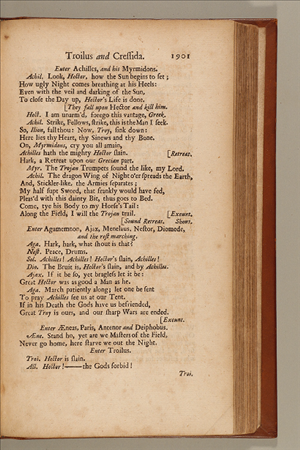 Troilus and Cressida. 1901
Enter Achilles, and his Myrmidons.
Achil. Look, Hector, how the Sun begins to set;
How ugly Night comes breathing at his Heels:
Even with the veil and darking of the Sun,
To close the Day up, Hector's Life is done.
[They fall upon Hector and kill him.
Hect. I am unarm'd, forego this vantage, Greek.
Achil. Strike, Fellows, strike, this is the Man I seek.
So, Ilion, fall thou: Now, Troy, sink down:
Here lies thy Heart, thy Sinews and thy Bone.
On, Myrmidons, cry you all amain,
Achilles hath the mighty Hector slain. [Retreat.
Hark, a Retreat upon our Grecian part.
Myr. The Trojan Trumpets sound the like, my Lord.
Achil. The dragon Wing of Night o'er spreads the Earth,
And, Stickler-like, the Armies separates;
My half supt Sword, that frankly would have fed,
Pleas'd with this dainty Bit, thus goes to Bed.
Come, tye his Body to my Horse's Tail:
Along the Field, I will the Trojan trail. [Exeunt.
[Sound Retreat. Shout.
Enter Agamemnon, Ajax, Menelaus, Nestor, Diomede,
and the rest marching.
Aga. Hark, hark, what shout is that?
Nest. Peace, Drums.
Sol. Achilles! Achilles! Hector's slain, Achilles!
Dio. The Bruit is, Hector's slain, and by Achilles.
Ajax. If it be so, yet bragless let it be:
Great Hector was as good a Man as he.
Aga. March patiently along; let one be sent
To pray Achilles see us at our Tent.
If in his Death the Gods have us befriended,
Great Troy is ours, and our sharp Wars are ended.
[Exeunt.
Enter Æneas, Paris, Antenor and Deiphobus.
Æne. Stand ho, yet are we Masters of the Field,
Never go home, here starve we out the Night.
Enter Troilus.
Troi. Hector is slain.
All. Hector!——the Gods forbid!
Troi.